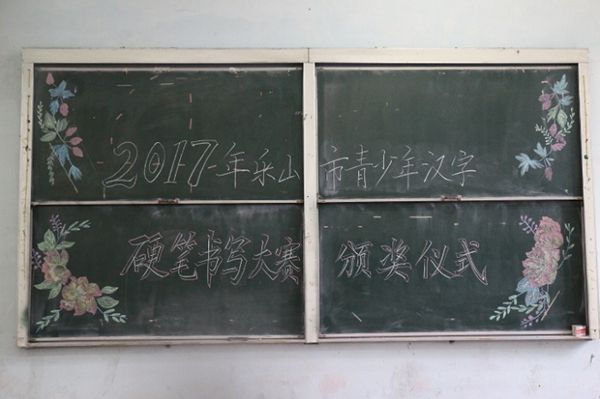 2017年乐山市青少年汉字
硬笔书写大赛 颁奖仪式